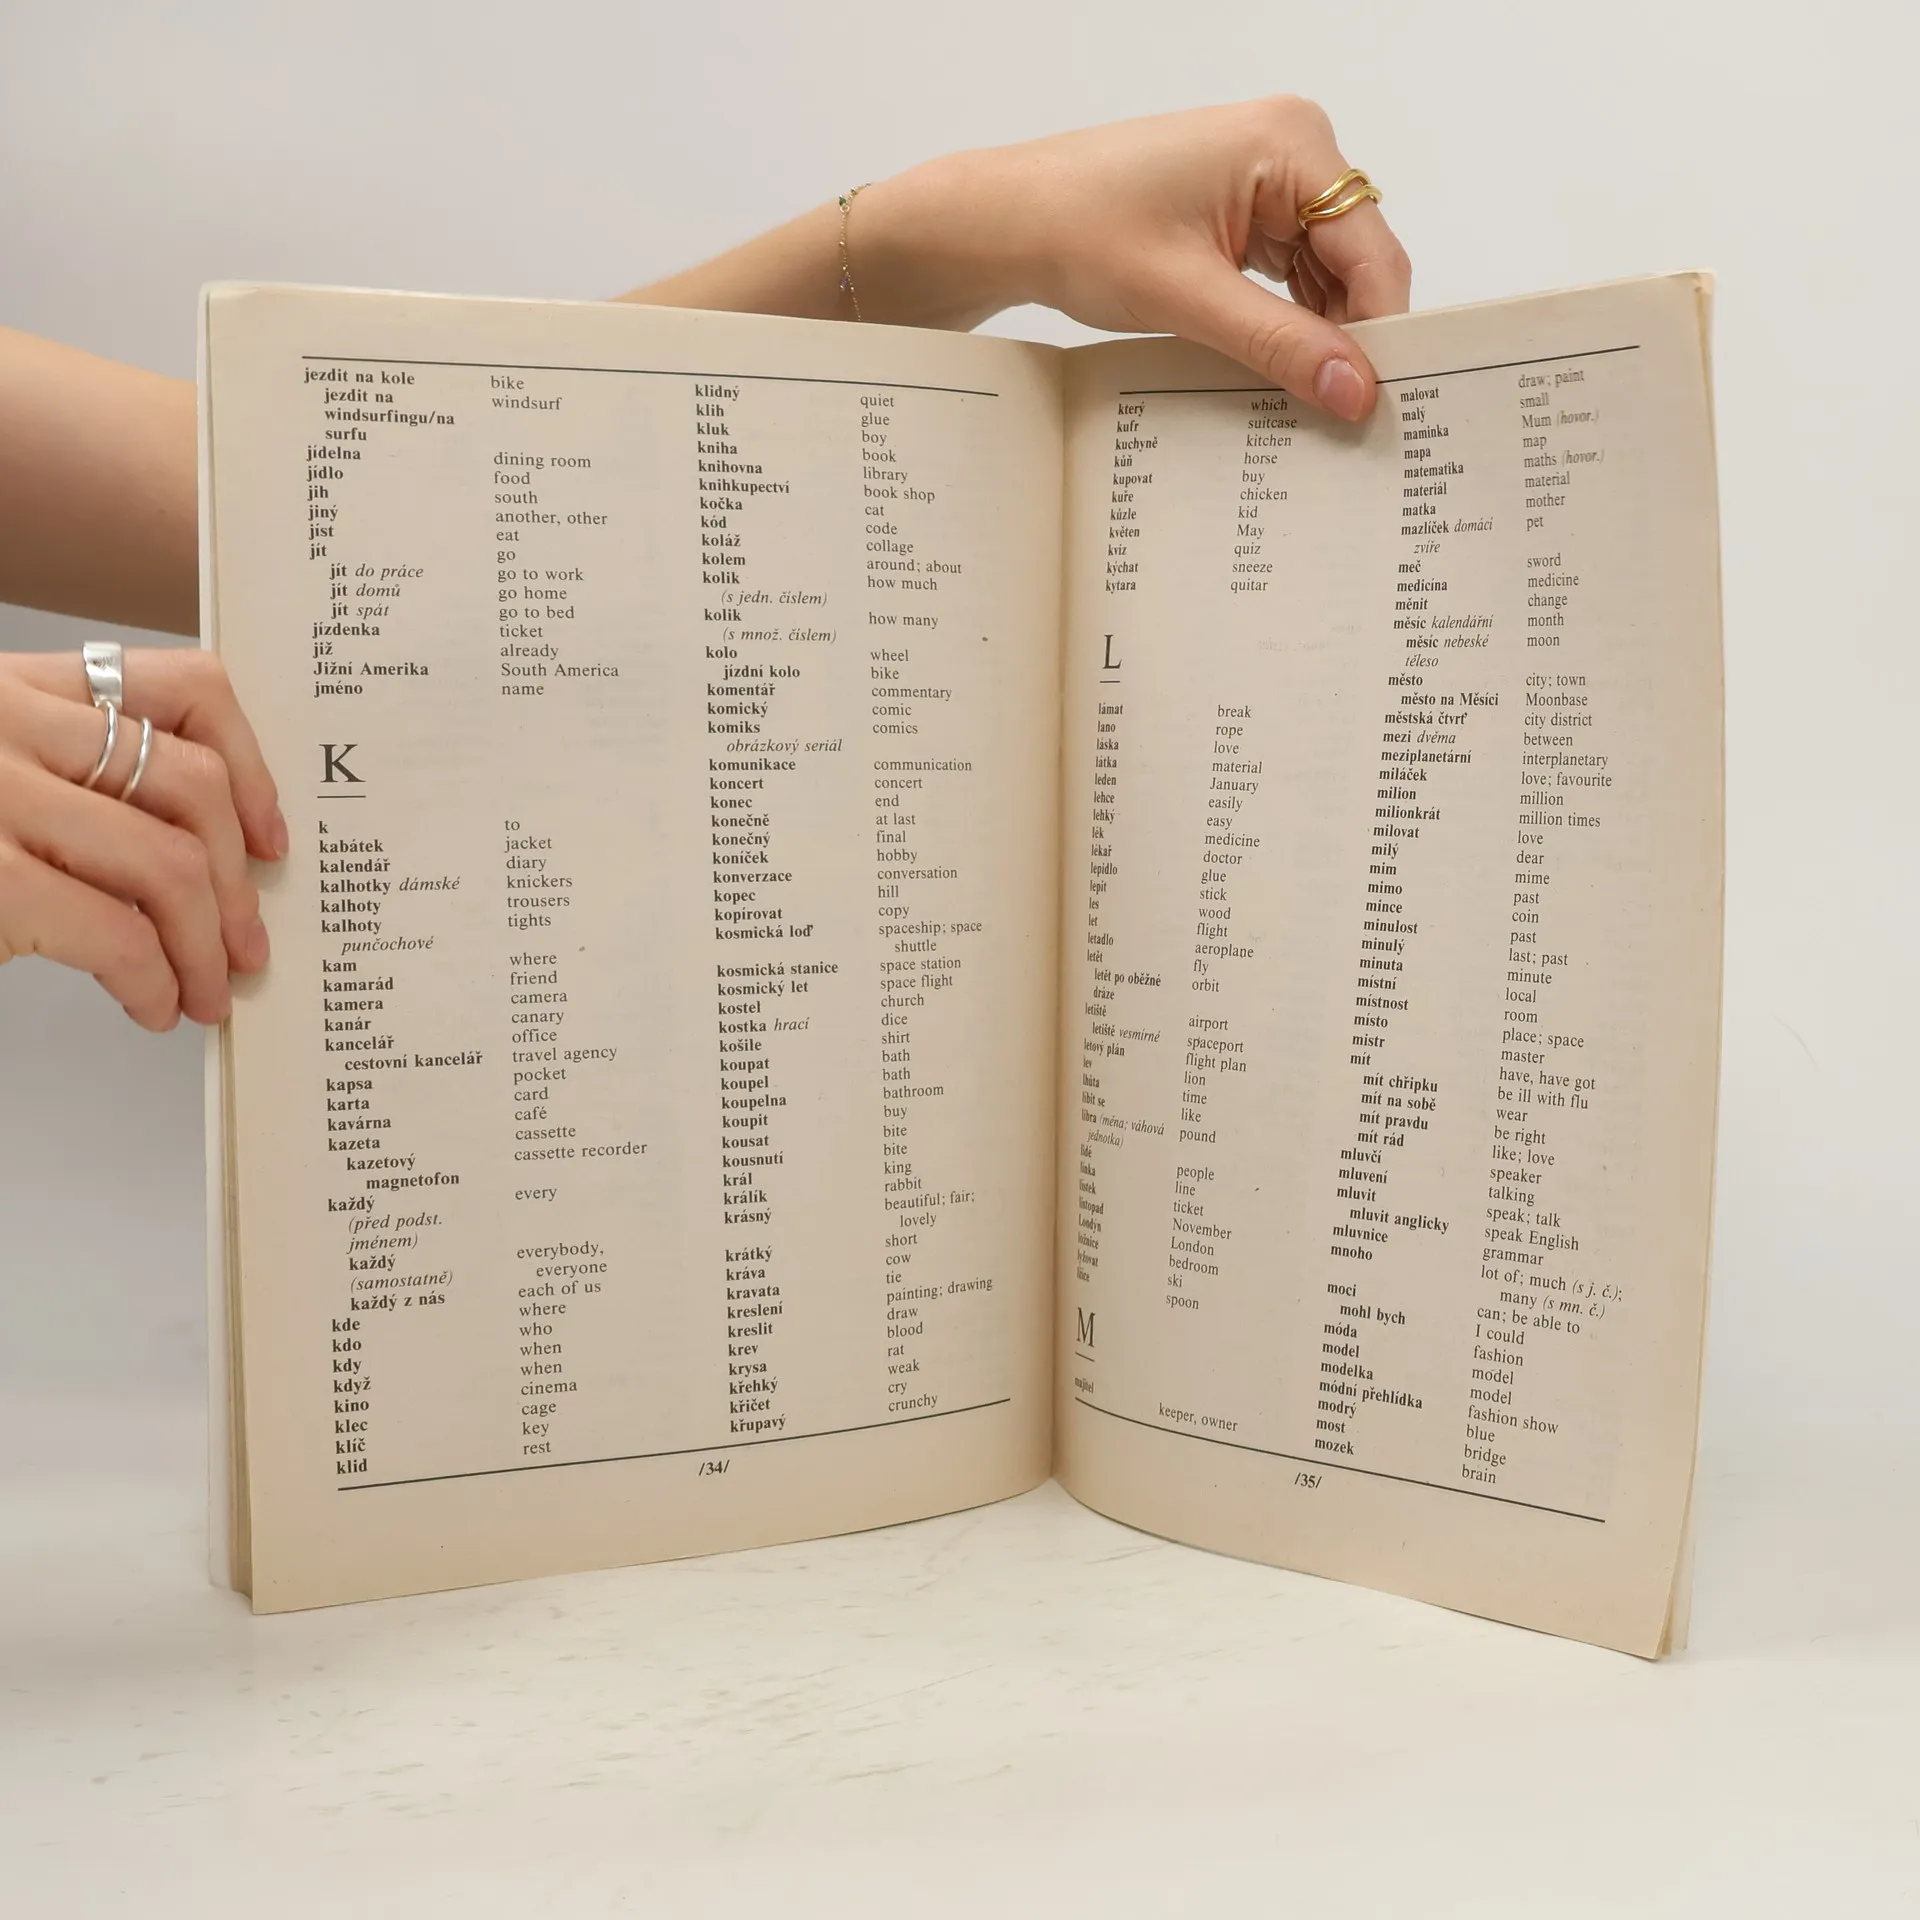 jezdit na kole bike
jezdit na windsurf
windsurfingu/na
surfu
jídelna dining room
jídlo food
jih south
jiný another, other
jíst eat
jít go
jít do práce go to work
jít domů go home
jít spát go to bed
jízdenka ticket
již already
Jižní Amerika South America
jméno name
K
k to
kabátek jacket
kalendář diary
kalhotky dámské knickers
kalhoty trousers
kalhoty tights
punčochové
kam where
kamarád friend
kamera camera
kanár canary
kancelář office
cestovní kancelář travel agency
kapsa pocket
karta card
kavárna café
kazeta cassette
kazetový cassette recorder
magnetofon
každý every
(před podst.
jménem)
každý everybody,
(samostatně) everyone
každý z nás each of us
kde where
kdo who
kdy when
když when
kino cinema
klec cage
klíč key
klid rest
klidný quiet
klih glue
kluk boy
kniha book
knihovna library
knihkupectví book shop
kočka cat
kód code
koláž collage
kolem around; about
kolik how much
(s jedn. číslem)
kolik how many
(s množ. číslem)
kolo wheel
jízdní kolo bike
komentář commentary
komický comic
komiks comics
obrázkový seriál
komunikace communication
koncert concert
konec end
konečně at last
konečný final
koníček hobby
konverzace conversation
kopec hill
kopírovat copy
kosmická loď spaceship; space
shuttle
kosmická stanice space station
kosmický let space flight
kostel church
kostka hrací dice
košile shirt
koupat bath
koupel bath
koupelna bathroom
koupit buy
kousat bite
kousnutí bite
král king
králík rabbit
krásný beautiful; fair;
lovely
krátký short
kráva cow
kravata tie
kreslení painting; drawing
kreslit draw
krev blood
krysa rat
křehký weak
křičet cry
křupavý crunchy
/34/
který which
kufr suitcase
kuchyně kitchen
kůň horse
kupovat buy
kuře chicken
kůzle kid
květen May
kvíz quiz
kýchat sneeze
kytara quitar
L
lámat break
lano rope
láska love
látka material
leden January
lehce easily
lehký easy
lék medicine
lékař doctor
lepidlo glue
lepit stick
les wood
let flight
letadlo aeroplane
letět fly
letět po oběžné orbit
dráze
letiště airport
letiště vesmírné spaceport
letový plán flight plan
lev lion
lhůta time
líbit se like
libra (měna; váhová pound
jednotka)
lidé people
linka line
lístek ticket
listopad November
Londýn London
ložnice bedroom
lyžovat ski
lžíce spoon
M
majitel keeper, owner
malovat draw; paint
malý small
maminka Mum (hovor.)
mapa map
matematika maths (hovor.)
materiál material
matka mother
mazlíček domácí pet
zvíře
meč sword
medicína medicine
měnit change
měsíc kalendářní month
měsíc nebeské moon
těleso
město city; town
město na Měsíci Moonbase
městská čtvrť city district
mezi dvěma between
meziplanetární interplanetary
miláček love; favourite
milion million
milionkrát million times
milovat love
milý dear
mim mime
mimo past
mince coin
minulost past
minulý last; past
minuta minute
místní local
místnost room
místo place; space
mistr master
mít have, have got
mít chřipku be ill with flu
mít na sobě wear
mít pravdu be right
mít rád like; love
mluvčí speaker
mluvení talking
mluvit speak; talk
mluvit anglicky speak English
mluvnice grammar
mnoho lot of; much (s j. č.);
many (s mn. č.)
moci can; be able to
mohl bych I could
móda fashion
model model
modelka model
módní přehlídka fashion show
modrý blue
most bridge
mozek brain
/35/